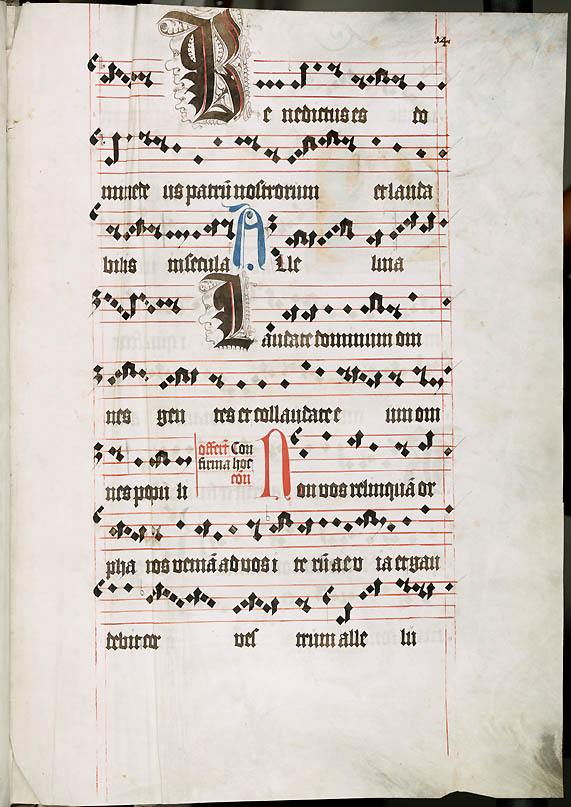 34
Be nedictus es do
mine de us patrū nostrorum et lauda
bilis in secula Alle luia
Laudate dominum om
nes gen tes et collaudate e um om
nes popu li offert Con
firma hoc
cōn Non vos relinquā or
pha nos veniā ad vos i te rū ae v ia et gau
debit cor ves trum alle lu